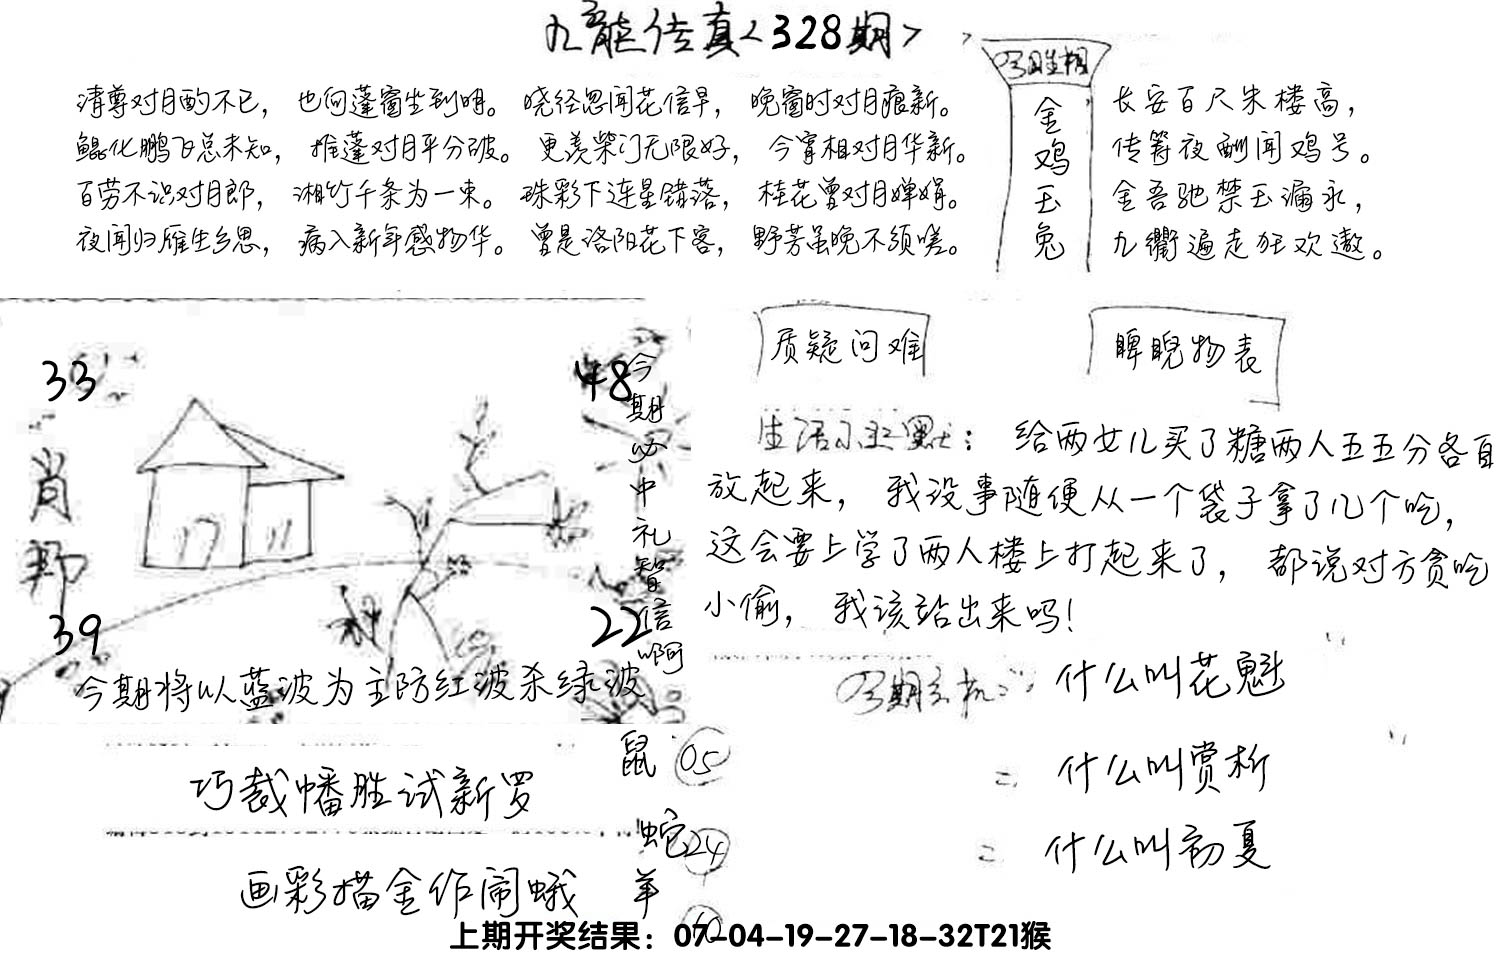 九龍传真<328期>
清尊对月酌不已，也向蓬窗坐到明。晓径忽闻花信早，晚窗时对月痕新。
鲲化鹏飞总未知，推蓬对月平分破。更羡柴门无限好，今宵相对月华新。
百劳不识对月郎，湘竹千条为一束。珠彩下连星错落，桂花曾对月婵娟。
夜闻归雁生乡思，病入新年感物华。曾是洛阳花下客，野芳虽晚不须嗟。
金鸡玉兔
长安百尺朱楼高，
传筹夜酬闻鸡号。
金吾驰禁玉漏永，
九衢遍走狂欢遨。
33
48
肖
39
22
今期必中礼智信啊
今期将以蓝波为主防红波杀绿波
质疑问难
睥睨物表
生活小幽默：给两女儿买了糖两人五五分各自
放起来，我没事随便从一个袋子拿了几个吃，
这会要上学了两人楼上打起来了，都说对方贪吃
小偷，我该站出来吗！
什么叫花魁
什么叫赏析
什么叫初夏
巧裁幡胜试新罗
画彩描金作闹蛾
鼠 05
蛇 24
羊
上期开奖结果：07-04-19-27-18-32T21猴